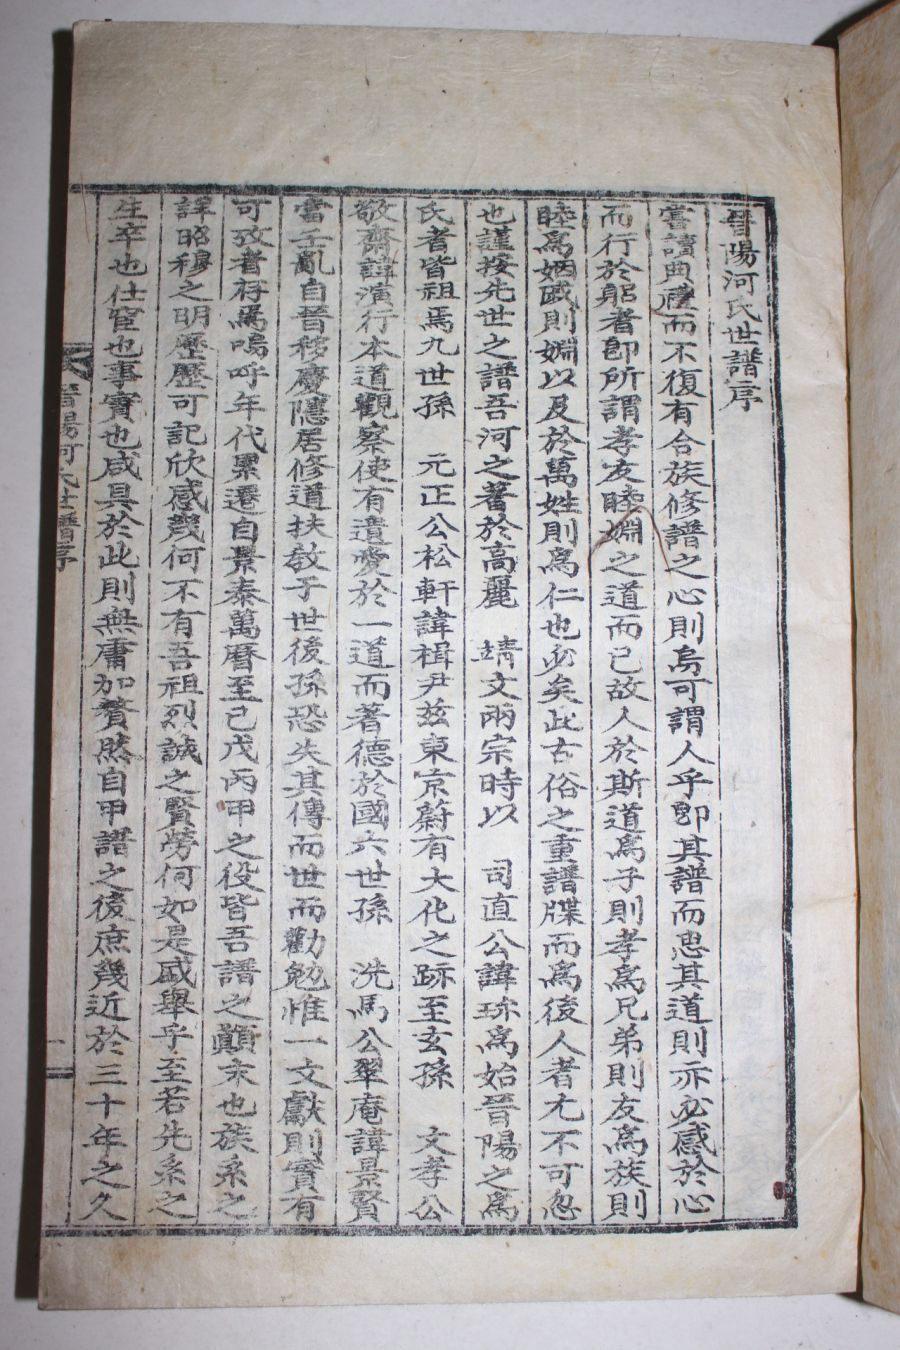 晉陽河氏世譜序
嘗讀典禮而不復有合族修譜之心則烏可謂人乎卽其譜而思其道則亦必感於心
而行於躬者卽所謂孝友睦婣之道而已故人於斯道爲子則孝爲兄弟則友爲族則
睦爲姻戚則婣以及於萬姓則爲仁也必矣此古俗之重譜牒而爲後人者尤不可忽
也謹按先世之譜吾河之著於高麗　靖文兩宗時以　司直公諱珎爲始晉陽之爲
氏者皆祖焉九世孫　元正公松軒諱楫尹玆東京蔚有大化之跡至玄孫　文孝公
敬齋諱演行本道觀察使有遺愛於一道而著德於國六世孫　洗馬公翠庵諱景賢
當壬亂自晉移慶隱居修道扶敎于世後孫恐失其傳而世而勸勉惟一文獻則實有
可攷者存焉嗚呼年代累遷自景泰萬曆至己戊丙甲之役皆吾譜之顚末也族系之
詳昭穆之明歷歷可記欣感幾何不有吾祖烈誠之賢勞何如是盛擧乎至若先系之
生卒也仕宦也事實也咸具於此則無庸加贅然自甲譜之後庶幾近於三十年之久
晉陽河氏世譜序
一